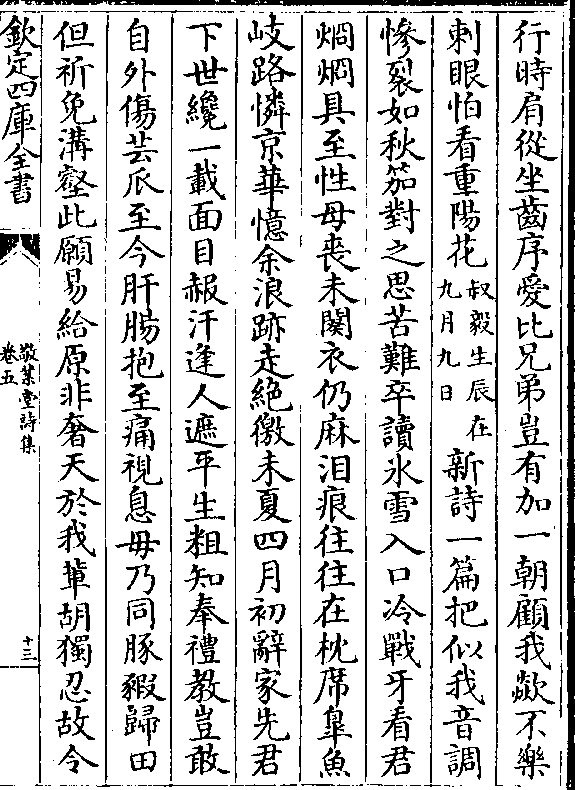 行時肩從坐齒序愛比兄弟豈有加一朝顧我歘不樂
刺眼怕看重陽花叔毅生辰在九月九日新詩一篇把似我音調
慘裂如秋笳對之思苦難卒讀氷雪入口冷戰牙看君
烱烱具至性母喪未闋衣仍麻泪痕往往在枕席臯魚
岐路憐京華憶余浪跡走絶徼未夏四月初辭家先君
下世纔一載面目赧汗逢人遮平生粗知奉禮教豈敢
自外傷芸瓜至今肝腸抱至痛視息毋乃同豚豭歸田
但祈免溝壑此願易給原非奢天於我軰胡獨忍故令
欽定四庫全書
敬業堂詩集
卷五
十三